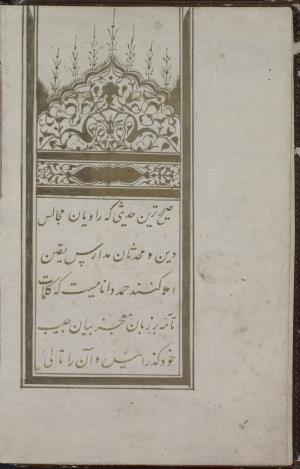 صحیح‌ترین حدیثی که راویان مجالس
دین و محدثان مدارس یقین
املا کنند حمد دانائیست که کلمات
تامه بر زبان معجز بیان حبیب
خود گذرانیده و آن را تالی